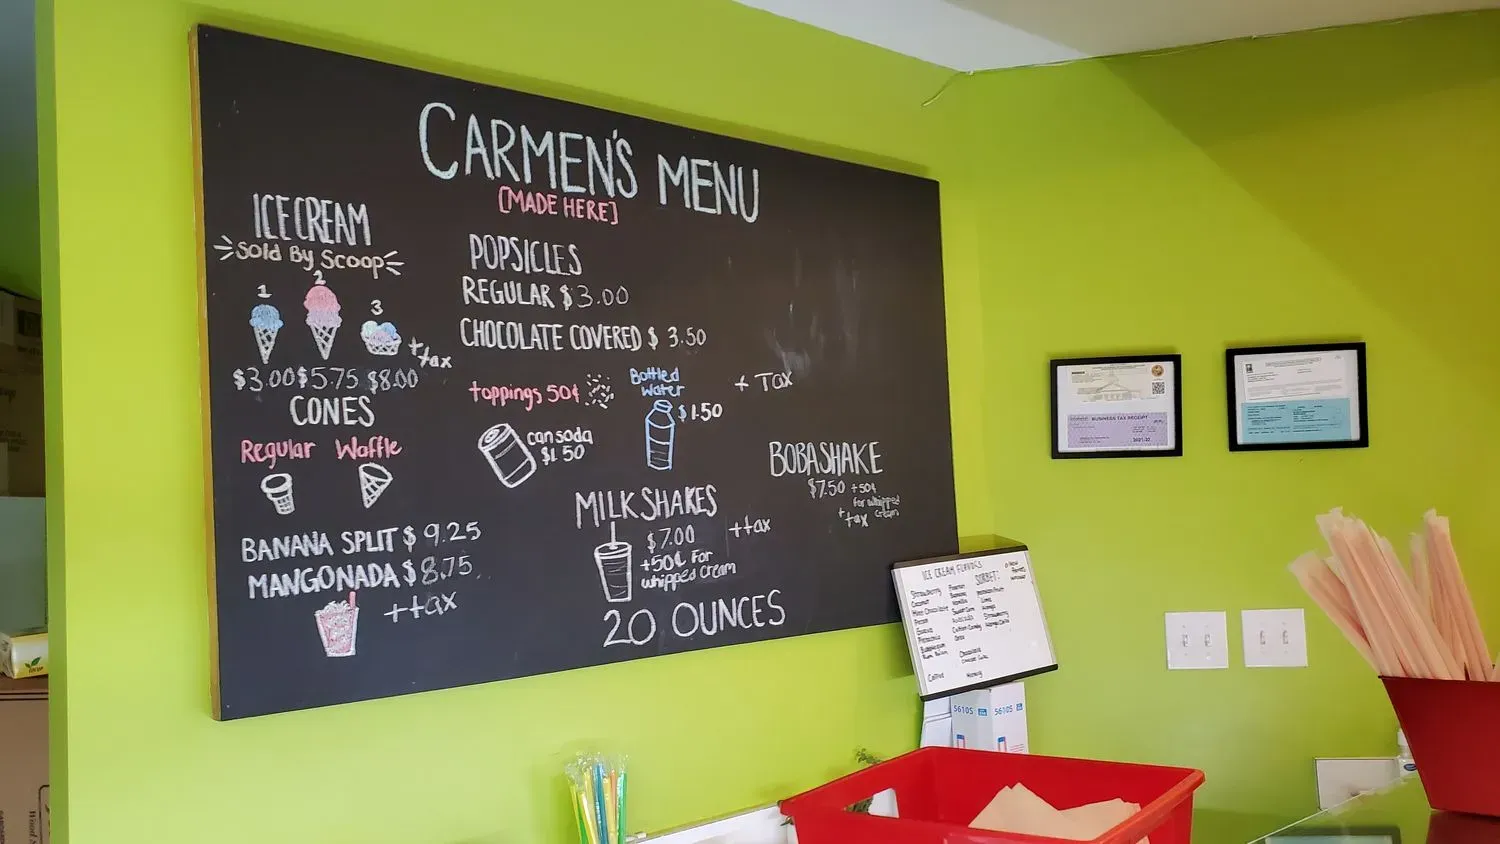 CARMEN'S MENU
[MADE HERE]
ICE CREAM
Sold By Scoop
1
2
3
+tax
$3.00 $5.75 $8.00
CONES
Regular Waffle
BANANA SPLIT $9.25
MANGONADA $8.75
+tax
POPSICLES
REGULAR $3.00
CHOCOLATE COVERED $ 3.50
+ Tax
toppings 50¢
can soda
$1.50
Bottled
Water
$1.50
MILKSHAKES
$7.00
+50¢ For
whipped cream
+tax
20 OUNCES
BOBA SHAKE
$7.50 +50¢
for whipped
cream
+tax
ICE CREAM FLAVORS
SORBET:
Strawberry
Coconut
Mint Chocolate
Pecan
Guava
Pistachio
Bubblegum
Rum Raisin
Coffee
Banana
Vanilla
Sweet Corn
Avocado
Cotton Candy
Oreo
Chocolate
Passion Fruit
Lime
Mango
Strawberry
BUSINESS TAX RECEIPT
2021-22
5610S 5610S